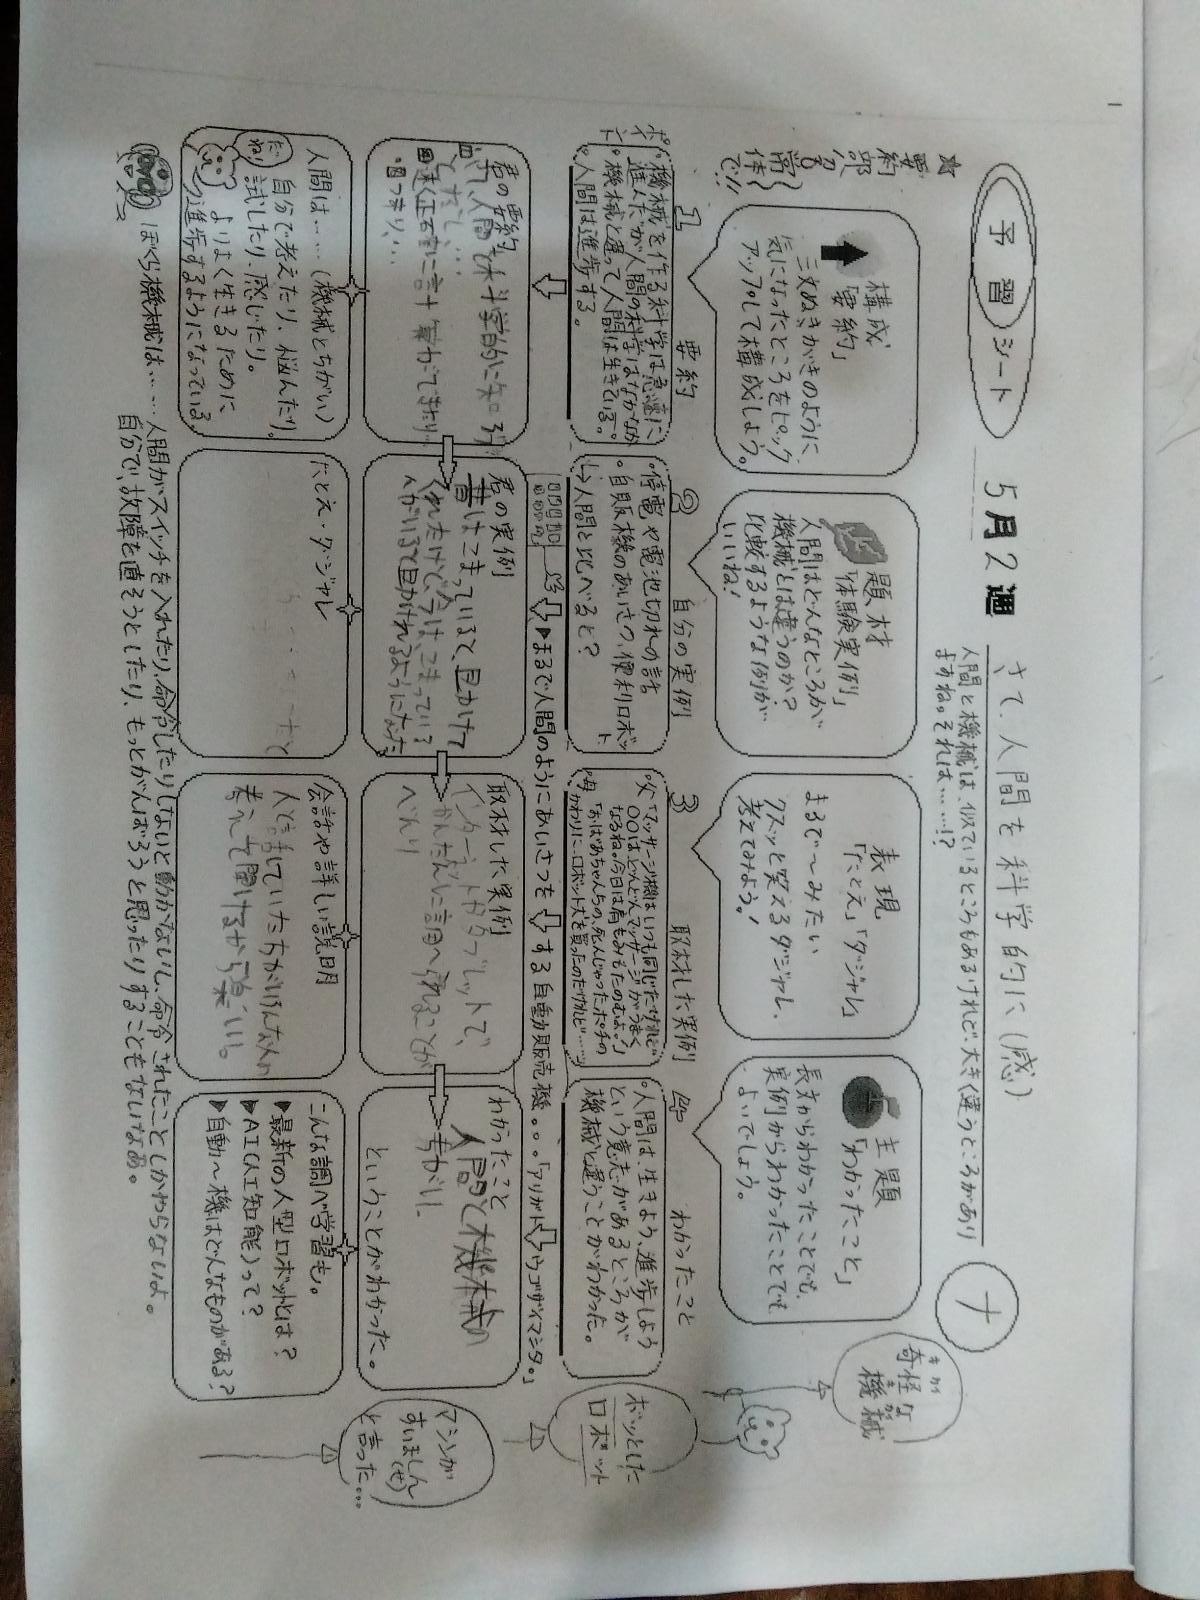 予習シート
5月2週
さて、人間を科学的に(感)
ナ
人間と機械は、似ているところもあるけれど、大きく違うところがあり
ますね。それは……!?
★要約
部分
常体
で!!
構成
「要約」
三文ぬきがきのように
気になったところをピック
アップして構成しよう。
題材
「体験実例」
人間はどんなところが
機械とは違うのか?
比較するような例が
いいね!
表現
「たとえ」「ダジャレ」
まるで〜みたい
クスッと笑えるダジャレ、
考えてみよう!
主題
「わかったこと」
長文からわかったことでも、
実例からわかったことでも
よいでしょう。
奇怪な
機械
1
要約
ポイント
・機械を作る科学は急速に
進んだが人間の科学はなかなか
・機械と違って人間は生きている。
・人間は進歩する。
2
自分の実例
・停電や電池切れの話
・自販機のあいさつ、便利ロボット
↳人間と比べると?
3
取材した実例
父「マッサージ機はいつも同じだけれど
〇〇はどんどんマッサージがうまく
なるね。今日は肩もみもたのむよ。」
母「おばあちゃんちの、死んじゃったポチの
かわりに、ロボット犬を買ったのだけれど……」
4
わかったこと
・人間は、生きよう、進歩しよう
という意志があるところが
機械と違うことがわかった。
ボッとした
ロボット
▶まるで人間のようにあいさつをする自動販売機。。「アリガトウゴザイマシタ。」
君の要約
君の実例
昔はこまっていると、目かけて
くれたけど、今はこまっている
取材した実例
インターネットやタブレットで、
かんたんに調べられることが
べんり
わかったこと
人間と機械の
ちがい
ということがわかった。
マシンが
すいましん
(せ)
と言った…
人間は……(機械とちがい)
自分で考えたり、悩んだり、
試したり、感じたり。
よりよく生きるために
進歩するようになっている
だね!
たとえ・ダジャレ
会話や詳しい説明
こんな調べ学習も。
▶最新の人型ロボットとは?
▶AI(人工知能)って?
▶自動〜機はどんなものがある?
ぼくら機械は……人間がスイッチを入れたり、命令したりしないと動かないし、命令されたことしかやらないよ。
自分で、故障を直そうとしたり、もっとがんばろうと思ったりすることもないなあ。